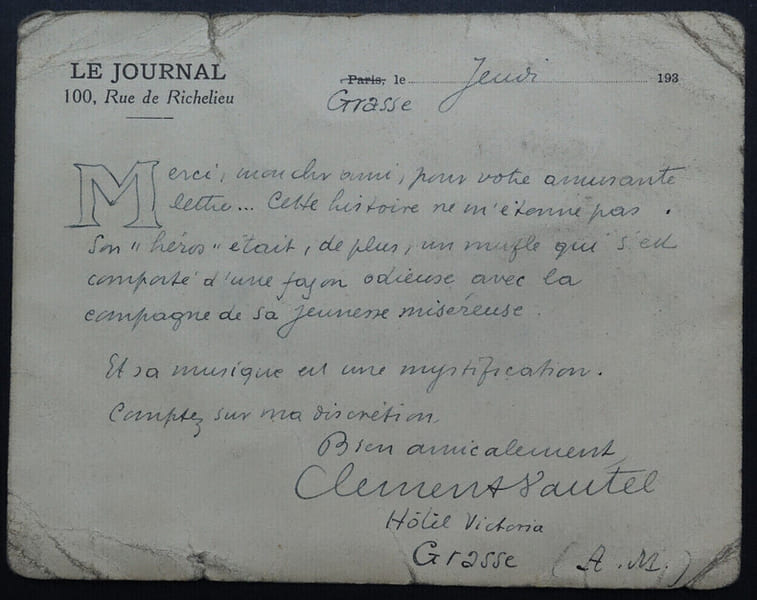 LE JOURNAL
100, Rue de Richelieu
Paris, le Jeudi 193
Grasse
Merci, mon chr ami, pour votre amusante
lettre... Cette histoire ne m'étonne pas.
Son "héros" était, de plus, un mufle qui s'est
comporté d'une façon odieuse avec la
compagne de sa jeunesse miséreuse.
Et sa musique est une mystification.
Comptez sur ma discrétion.
Bien amicalement
Clement Vautel
Hôtel Victoria
Grasse (A.M.)